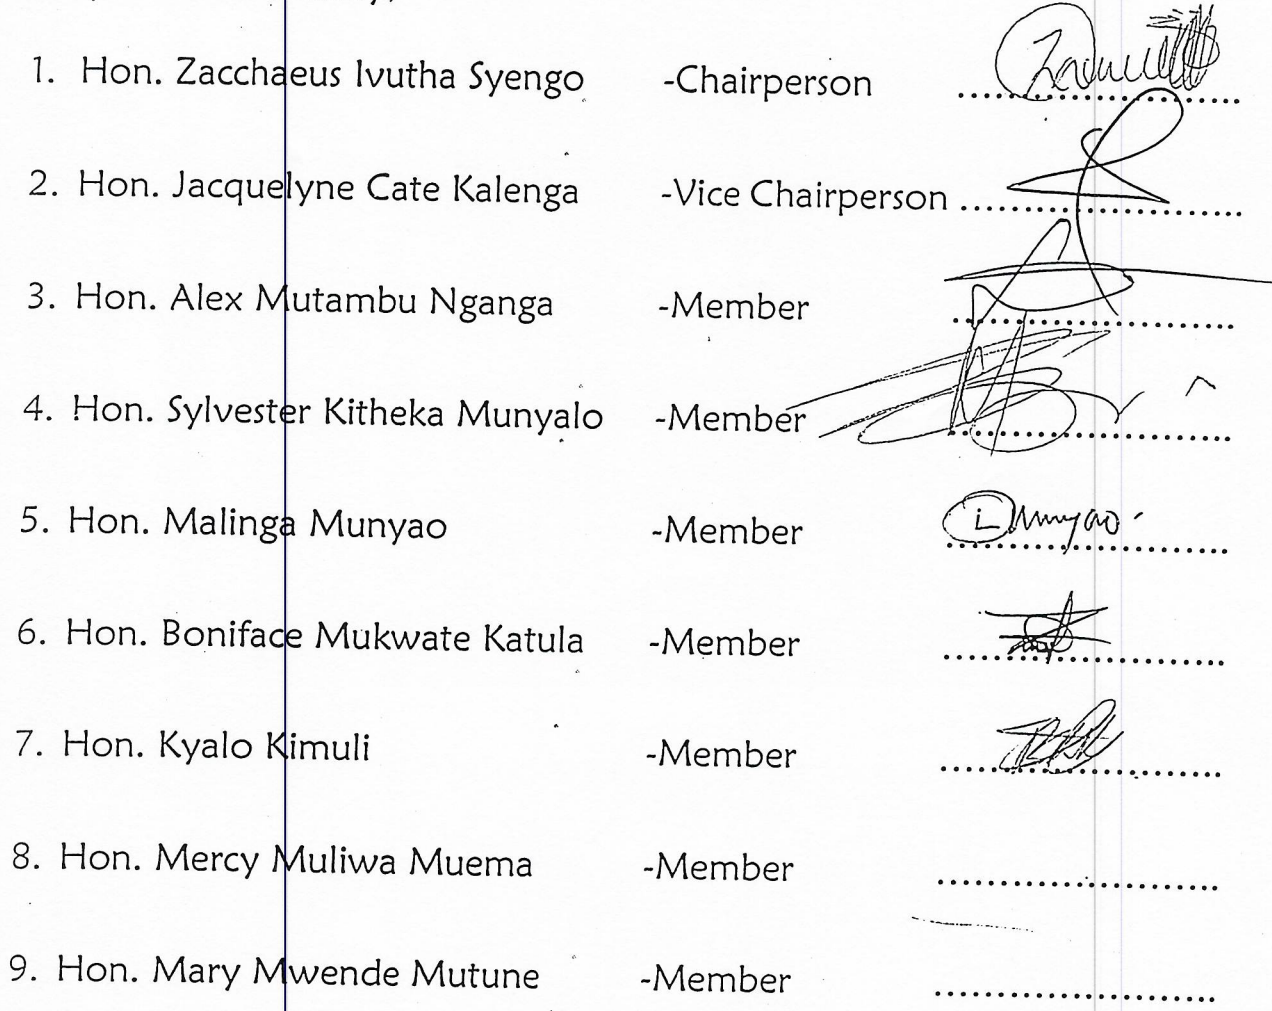 1. Hon. Zacchaeus Ivutha Syengo -Chairperson ........................
2. Hon. Jacquelyne Cate Kalenga -Vice Chairperson ........................
3. Hon. Alex Mutambu Nganga -Member ........................
4. Hon. Sylvester Kitheka Munyalo -Member ........................
5. Hon. Malinga Munyao -Member L Munyao ........................
6. Hon. Boniface Mukwate Katula -Member ........................
7. Hon. Kyalo Kimuli -Member ........................
8. Hon. Mercy Muliwa Muema -Member ........................
9. Hon. Mary Mwende Mutune -Member ........................